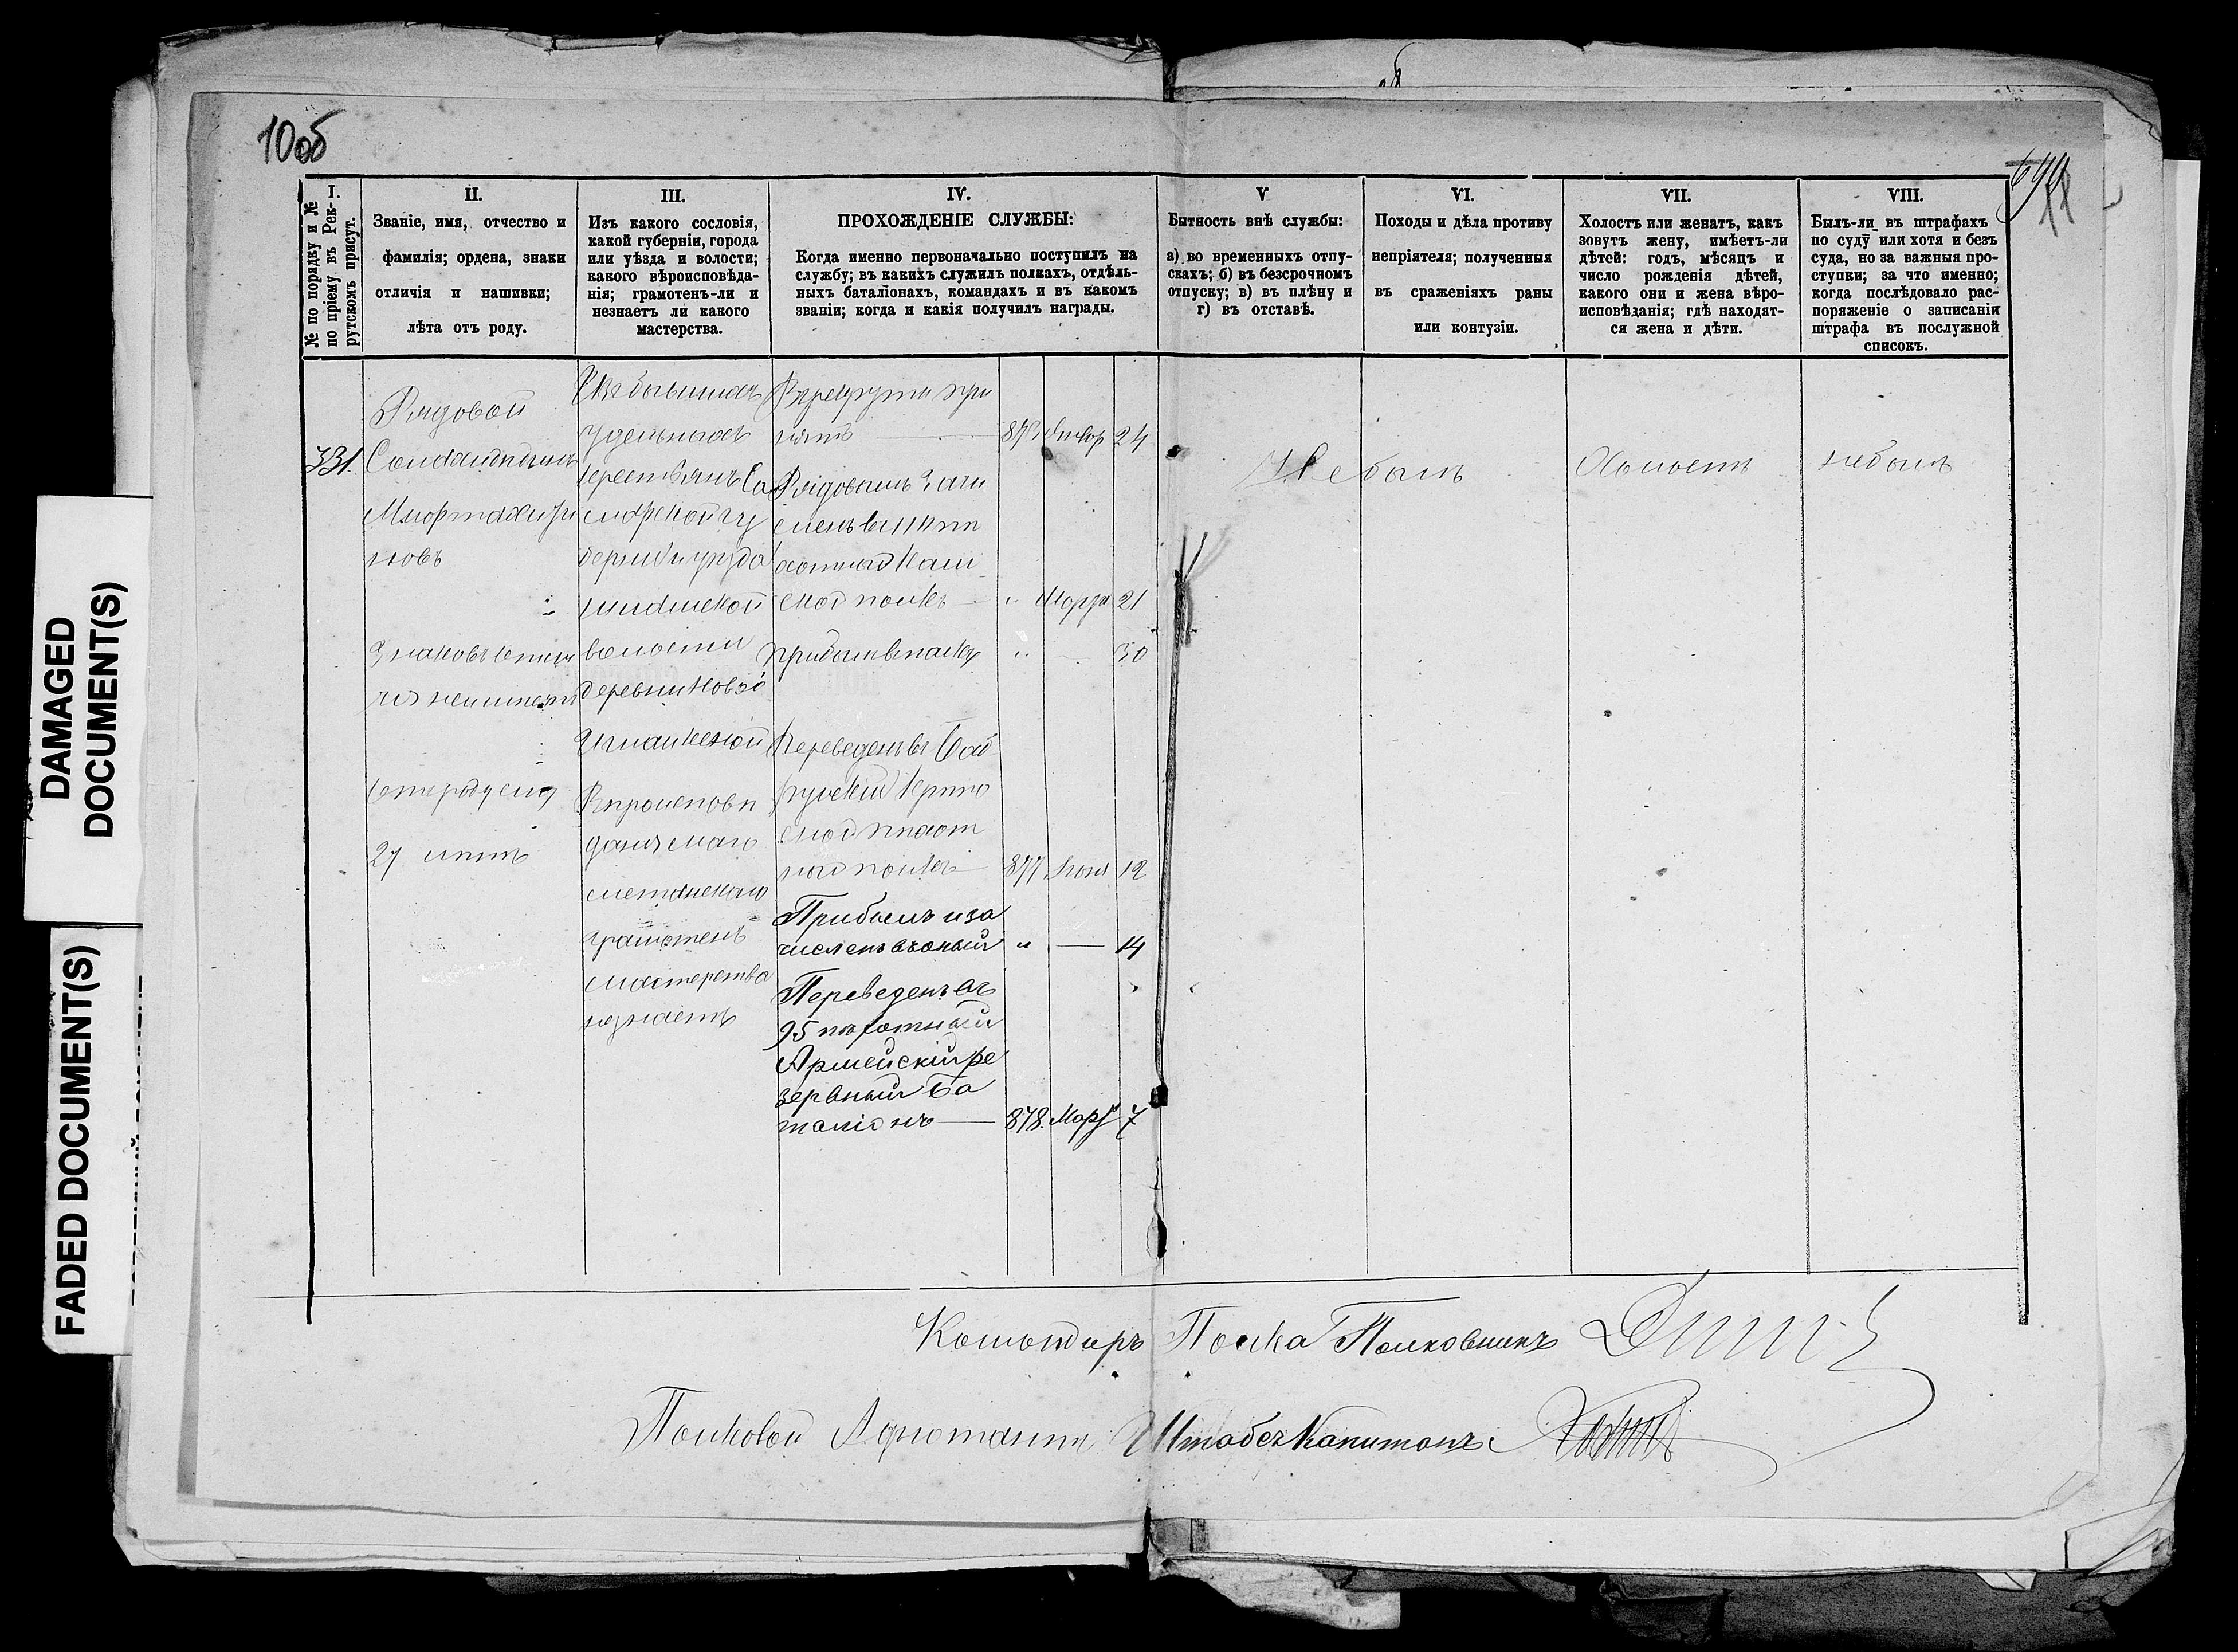 10об
DAMAGED
DOCUMENT(S)
FADED DOCUMENT(S)
I.
№ по порядку и №
по пріему въ Рек-
рутскомъ присут.
II.
Званіе, имя, отчество и
фамилія; ордена, знаки
отличія и нашивки;
лѣта отъ роду.
III.
Изъ какого сословія,
какой губерніи, города
или уѣзда и волости;
какого вѣроисповѣда-
нія; грамотенъ-ли и
незнаетъ ли какого
мастерства.
IV.
ПРОХОЖДЕНІЕ СЛУЖБЫ:
Когда именно первоначально поступилъ на
службу; въ какихъ служилъ полкахъ, отдѣль-
ныхъ баталіонахъ, командахъ и въ какомъ
званіи; когда и какія получилъ награды.
V
Бытность внѣ службы:
а) во временныхъ отпу-
скахъ; б) въ безсрочномъ
отпуску; в) въ плѣну и
г) въ отставѣ.
VI.
Походы и дѣла противу
непріятеля; полученныя
въ сраженіяхъ раны
или контузіи.
VII.
Холостъ или женатъ, какъ
зовутъ жену, имѣетъ-ли
дѣтей: годъ, мѣсяцъ и
число рожденія дѣтей,
какого они и жена вѣро-
исповѣданія; гдѣ находят-
ся жена и дѣти.
VIII.
Былъ-ли въ штрафахъ
по суду или хотя и безъ
суда, но за важныя про-
ступки; за что именно;
когда послѣдовало рас-
поряженіе о записаніи
штрафа въ послужной
списокъ.
331.
Рядовой
новъ
Знаковъ отли
чія неимеетъ
Отъ роду ему
27 лѣтъ
Изъ бывшихъ
удельныхъ
крестьянъ Са
марской гу
берніи уѣзда
волости
деревни Новой
Вѣроисповѣ
данія маго
метанскаго
грамотенъ
мастерства
незнаетъ
Врекруты при
нятъ — 187 Январ 24
Рядовымъ зачи
сленъ въ пѣ
хотный
ской полкъ — „ Марта 21
прибылъ въ полкъ „ — 30
Переведенъ въ
крѣпо
сной пѣхот
ной полкъ — 877 Іюня 12
Прибылъ и за
численъ въ оный „ — 14
Переведенъ въ
95 пѣхотный
Армейскій ре
зервный Ба
таліонъ — 878. Март 7
Не былъ
Холостъ
небылъ
Командиръ Полка Полковникъ
Полковой Адъютантъ Штабсъ Капитанъ